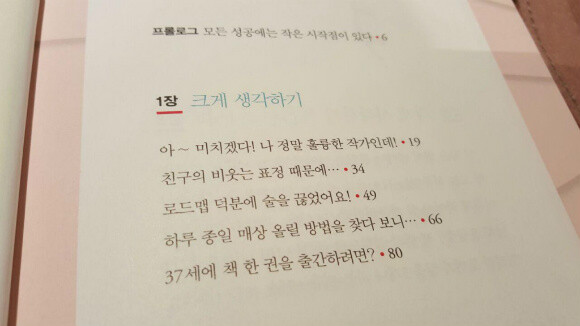 프롤로그 모든 성공에는 작은 시작점이 있다 • 6
1장 크게 생각하기
아~ 미치겠다! 나 정말 훌륭한 작가인데! • 19
친구의 비웃는 표정 때문에… • 34
로드맵 덕분에 술을 끊었어요! • 49
하루 종일 매상 올릴 방법을 찾다 보니… • 66
37세에 책 한 권을 출간하려면? • 80